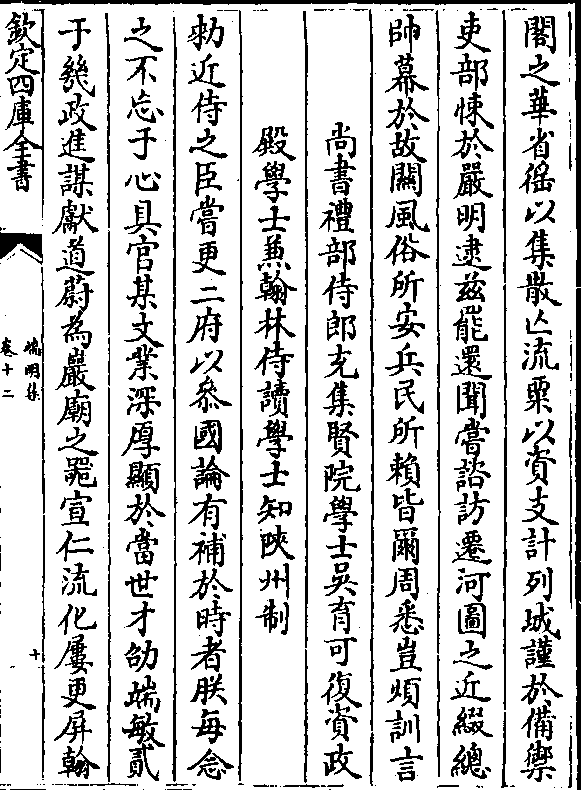 閣之華省徭以集散亾流粟以資支計列城謹於備禦
吏部悚於嚴明逮兹罷還聞嘗諮訪遷河圖之近綴總
帥幕於故關風俗所安兵民所賴皆爾周悉豈煩訓言
尚書禮部侍郎充集賢院學士吳育可復資政
殿學士兼翰林侍讀學士知陜州制
勅近侍之臣嘗更二府以叅國論有補於時者朕每念
之不忘于心具官某文業深厚顯於當世才劭端敏貳
于幾政進謀獻道蔚為巖廟之噐宣仁流化屢更屏翰
欽定四庫全書
端明集
卷十二
十